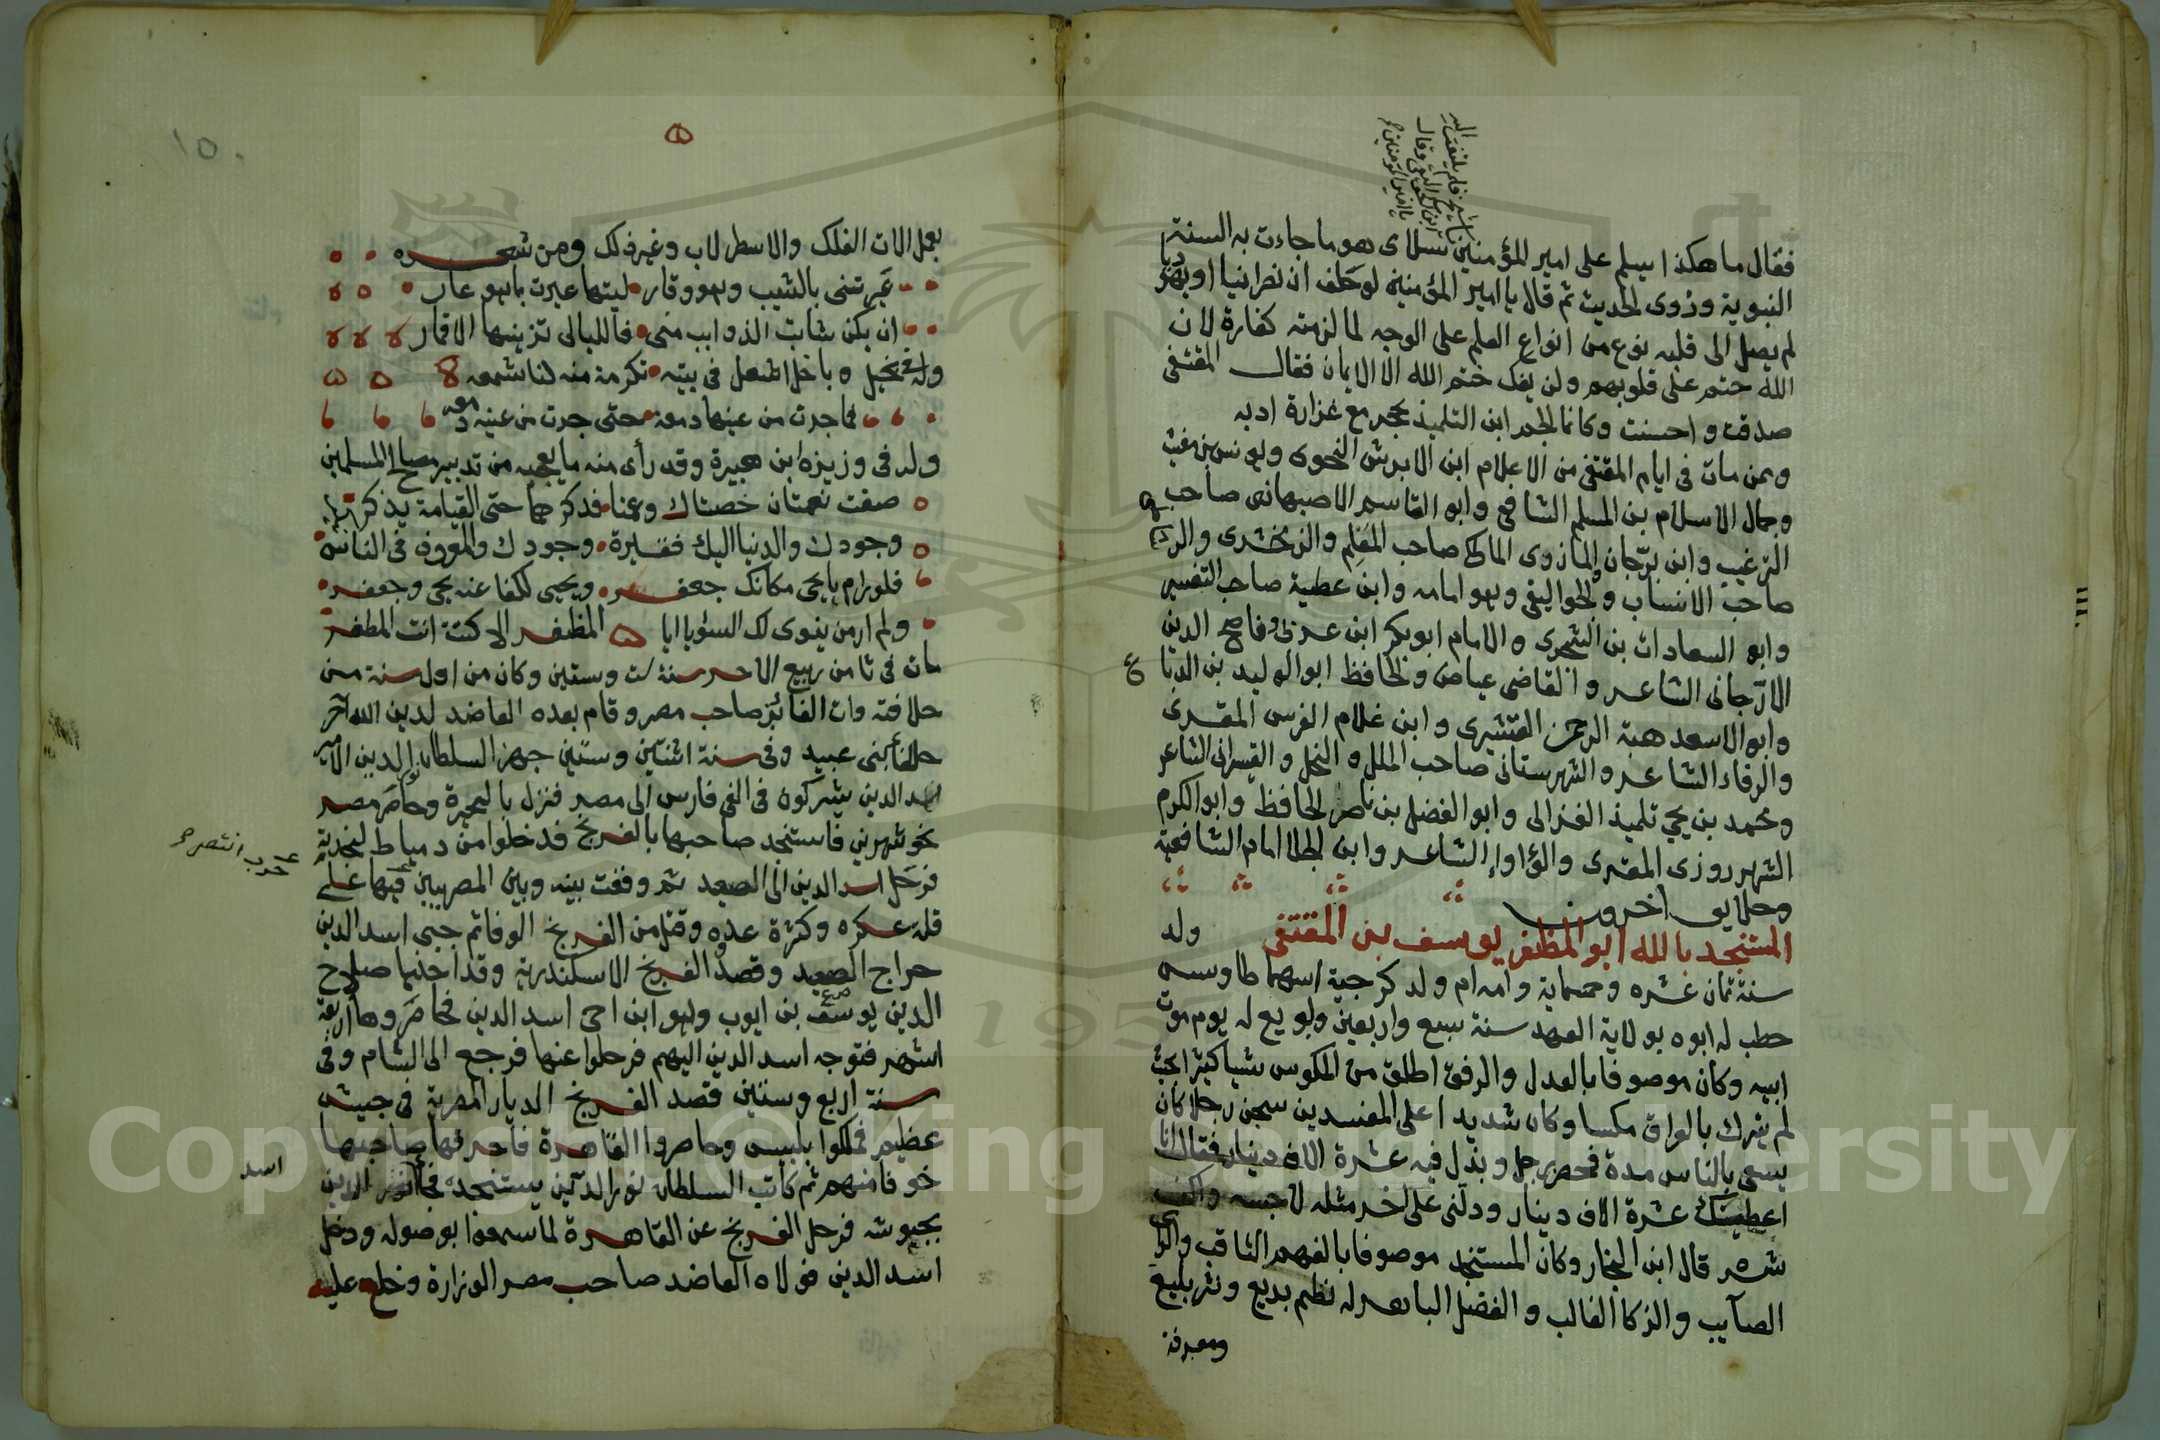 فقال ما هكذا يسلم على امير المؤمنين سلامى هو ما جاءت به السنة
النبوية وروى الحديث ثم قال يا امير المؤمنين لو حلف ان نصرانيا او يهوديا
لم يصل الى قلبه نوع من انواع العلم على الوجه لما لزمته كفارة لان
الله ختم على قلوبهم ولن يفك ختم الله الا الايمان فقال المقتفى
صدقت واحسنت وكانما الجم ابن التلميذ بحجر مع غزارة ادبه
وممن مات فى ايام المقتفى من الاعلام ابن الابرش النحوى ويونس بن مغيث
وجمال الاسلام بن المسلم الشافعى وابو القاسم الاصبهانى صاحب
الترغيب وابن برّجان والمازرى المالكى صاحب المعلم والزمخشرى والر
صاحب الانساب والجواليقى وهو امامه وابن عطية صاحب التفسير
وابو السعادات بن الشجرى والامام ابو بكر ابن عربى وناصح الدين
الارّجانى الشاعر والقاضى عياض والحافظ ابو الوليد بن الدبا
ع
وابو الاسعد هبة الرحمن القشيرى وابن غلام الفرس المقرى
والرفاء الشاعر والشهرستانى صاحب الملل والنحل والقيسرانى الشاعر
ومحمد بن يحيى تلميذ الغزالى وابو الفضل بن ناصر الحافظ وابو الكرم
الشهرزورى المقرى والواوا الشاعر وابن الخل امام الشافعية
وخلايق اخرون
المستنجد بالله ابو المظفر يوسف بن المقتفى ولد
سنة ثمان عشره وخمسماية وامه ام ولد كرجية اسمها طاوس
خطب له ابوه بولاية العهد سنة سبع واربعين وبويع له يوم موت
ابيه وكان موصوفا بالعدل والرفق اطلق من المكوس شيا كثيرا بحيث
لم يترك بالعراق مكسا وكان شديدا على المفسدين سجن رجلا كان
يسعى بالناس مدة فحضر رجل وبذل فيه عشرة الاف دينار فقال انا
اعطيتك عشرة الاف دينار ودلنى على اخر مثله لاحبسه واكف
شره قال ابن النجار وكان المستنجد موصوفا بالفهم الثاقب والراى
الصآيب والزكا الغالب والفضل الباهر له نظم بديع ونثر بليغ
ومعرفة
١٥٠
بعمل الات الفلك والاسطرلاب وغير ذلك ومن شعره
عيّرتنى بالشيب وهو وقار ليتها عيرت بما هو عار
ان يكن شابت الذوايب منى فالليالى تزينها الاقمار
وله فى بخيل وباخل اشعل فى بيته تكرمة منه لنا شمعه
فما جرت من عينها دمعة حتى جرت من عينه دمعه
وله فى وزيره ابن هبيرة وقد رأى منه ما يعجبه من تدبير مصالح المسلمين
صفت نعمتان خصتاك وعمتا فذكرهما حتى القيامة يذكر
وجودك والدنيا اليك فقيرة وجودك والمعروف فى الناس
فلو رام يا يحيى مكانك جعفر ويحيى لكفا عنه يحيى وجعفر
ولم ار من ينوى لك السوء يا ابا المظفر الا كنت انت المظفر
مات فى ثامن ربيع الاخر سنة ست وستين وكان من اول سنة من
خلافته مات الفائز صاحب مصر وقام بعده العاضد لدين الله آخر
خلفاء بنى عبيد وفى سنة اثنتين وستين جهز السلطان نور الدين الامير
اسد الدين شيركوه فى الفى فارس الى مصر فنزل بالجيزة وحاصر مصر
نحو شهرين فاستنجد صاحبها بالفرنج فدخلوا من دمياط لنجدته
فرحل اسد الدين الى الصعيد ثم وقعت بينه وبين المصريين حرب انتصر فيها على
قلة عسكره وكثرة عدوه وقتل من الفرنج الوفا ثم جبى اسد الدين
خراج الصعيد وقصد الفرنج الاسكندرية وقد اخذها صلاح
الدين يوسف بن ايوب وهو ابن اخى اسد الدين فحاصروها اربعة
اشهر فتوجه اسد الدين اليهم فرحلوا عنها فرجع الى الشام وفى
سنة اربع وستين قصد الفرنج الديار المصرية فى جيش
عظيم فملكوا بلبيس وحاصروا القاهرة فاحرقها صاحبها
خوفا منهم ثم كاتب السلطان نور الدين يستنجده فجاء اسد الدين
بجيوشه فرحل الفرنج عن القاهرة لما سمعوا بوصوله ودخل
اسد الدين فولاه العاضد صاحب مصر الوزارة وخلع عليه
Copyright © King Saud University
195